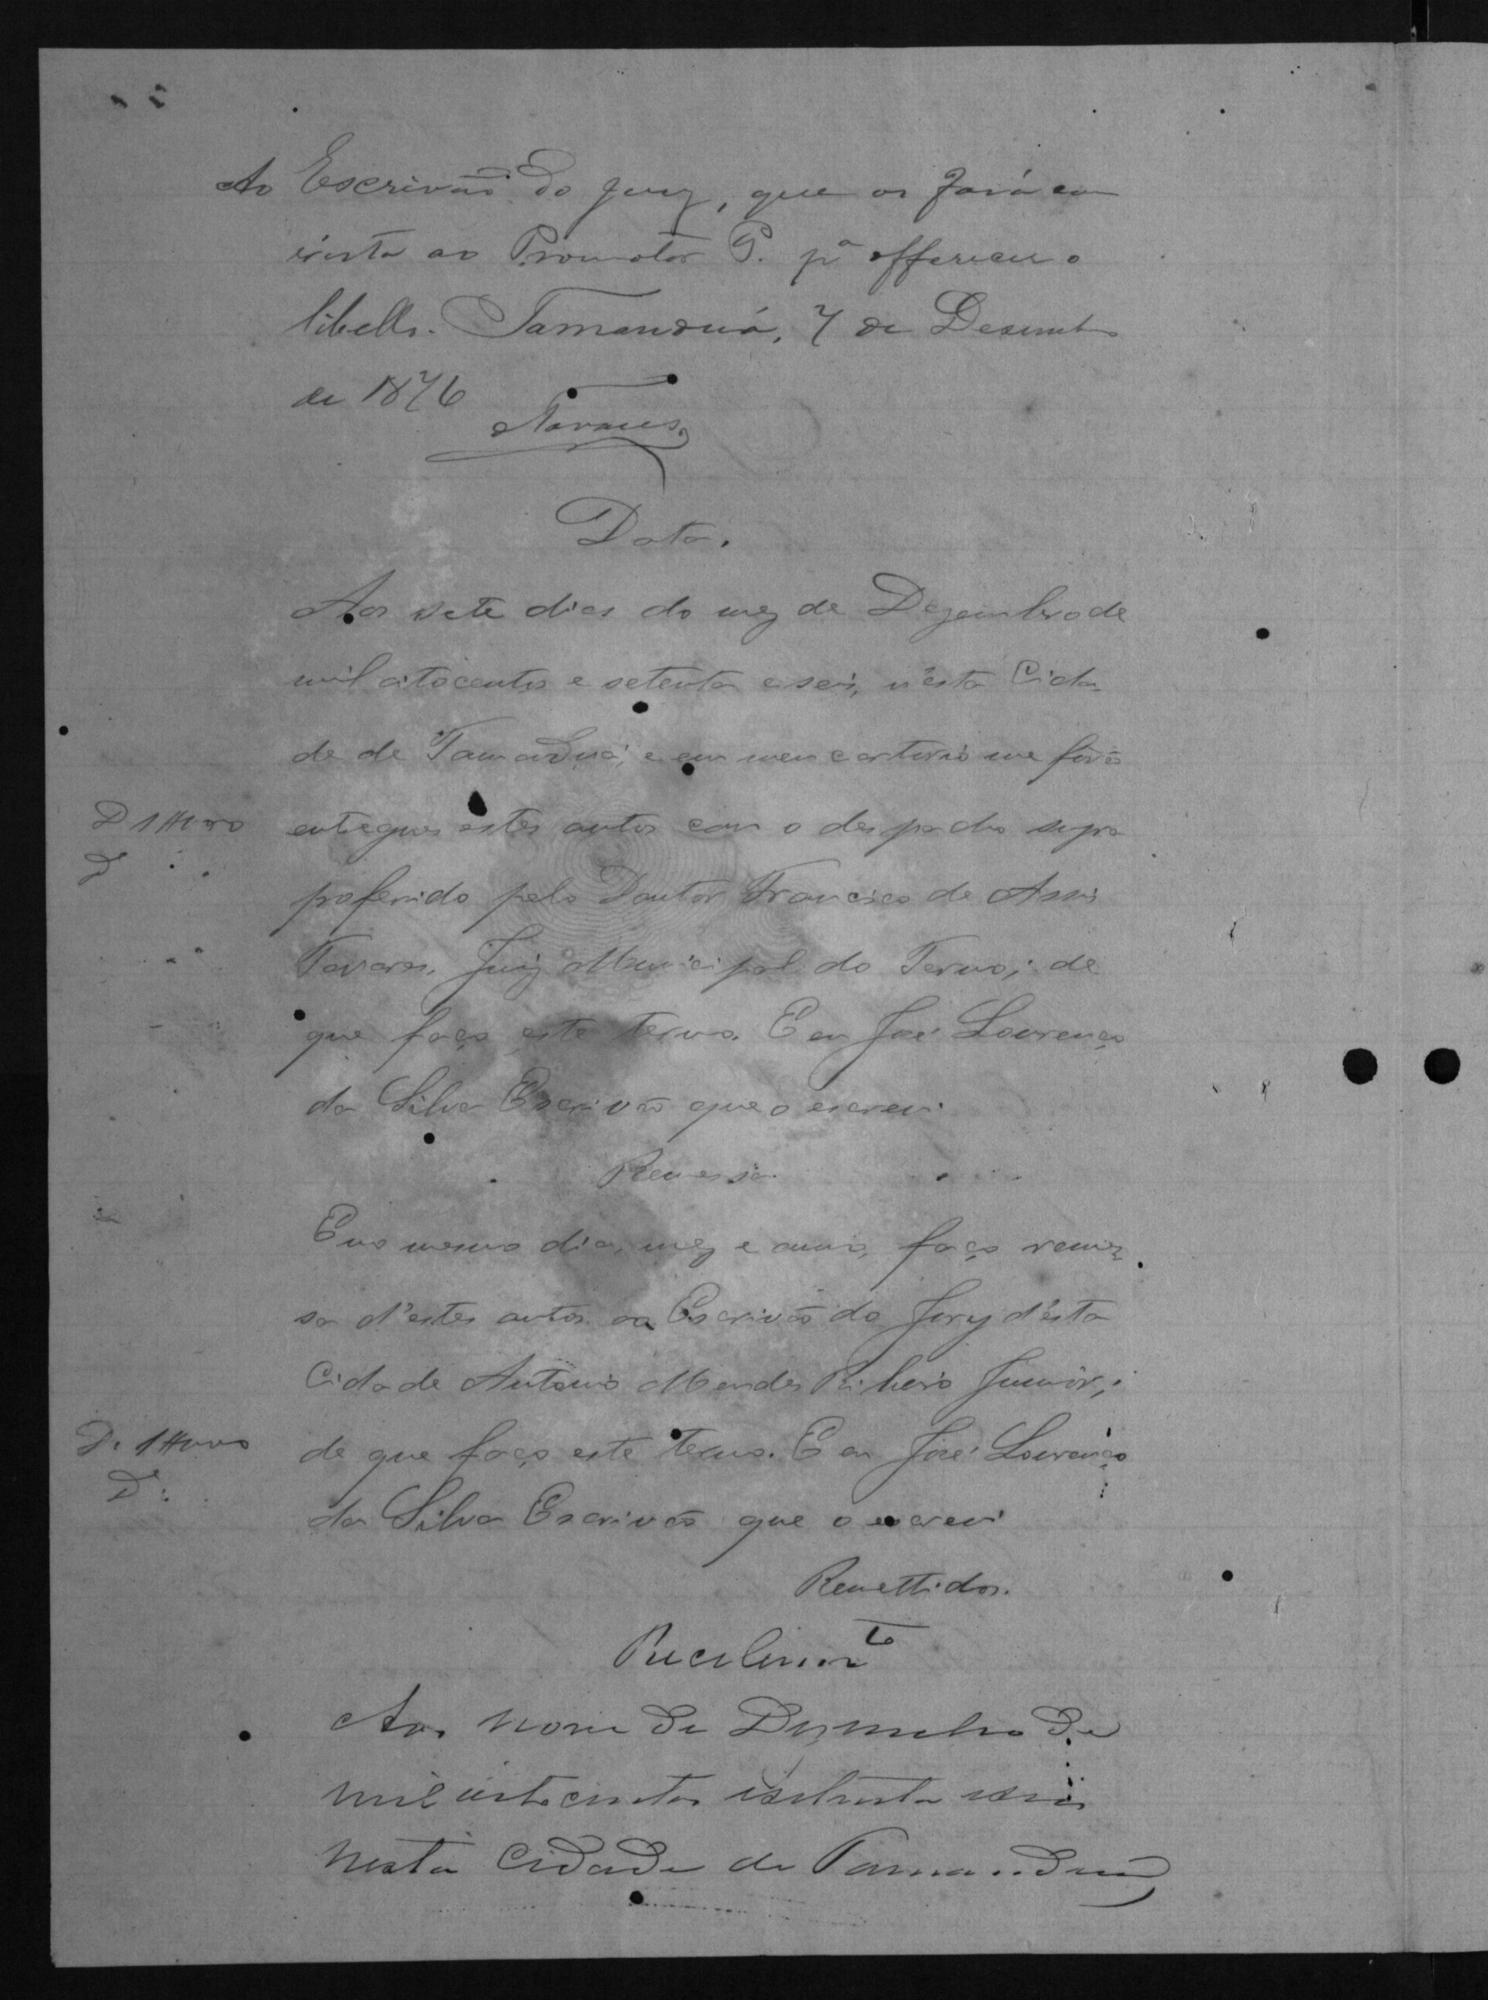 Ao Escrivão do Jury, que os fará com
vista ao Promotor P. pª offerecer o
libello. Tamanduá, 7 de Desembro
de 1876
Tavares
Data.
Aos sete dias do mez de Dezembro de
mil oitocentos e setenta e seis, n'esta Cida
de de Tamanduá, e em meu cartorio me forão
entregues estes autos com o despacho supra
proferido pelo Doutor Francisco de Assis
Tavares, Juiz Municipal do Termo; de
que faço este termo. E eu José Lourenço
da Silva Escrivão que o escrevi
Remessa
E no mesmo dia, mez e anno, faço remes
sa d'estes autos ao Escrivão do Jury d'esta
Cidade Antonio Mendes Ribeiro Junior;
de que faço este termo. E eu José Lourenço
da Silva Escrivão que o escrevi
Remettidos.
Recebimto
Aos nove de Dezembro de
mil oitocentos esetenta eseis
nesta Cidade de Tamanduá